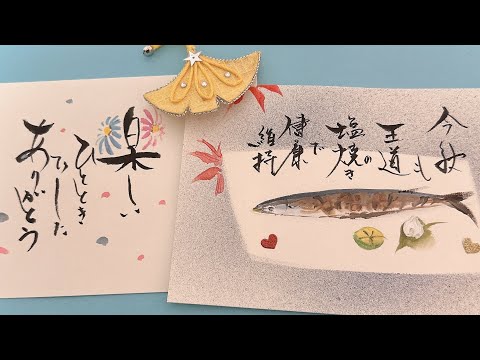 楽しい
ひととき
でした
ありがとう
今年も
王道の
塩焼き
で
健康
維持